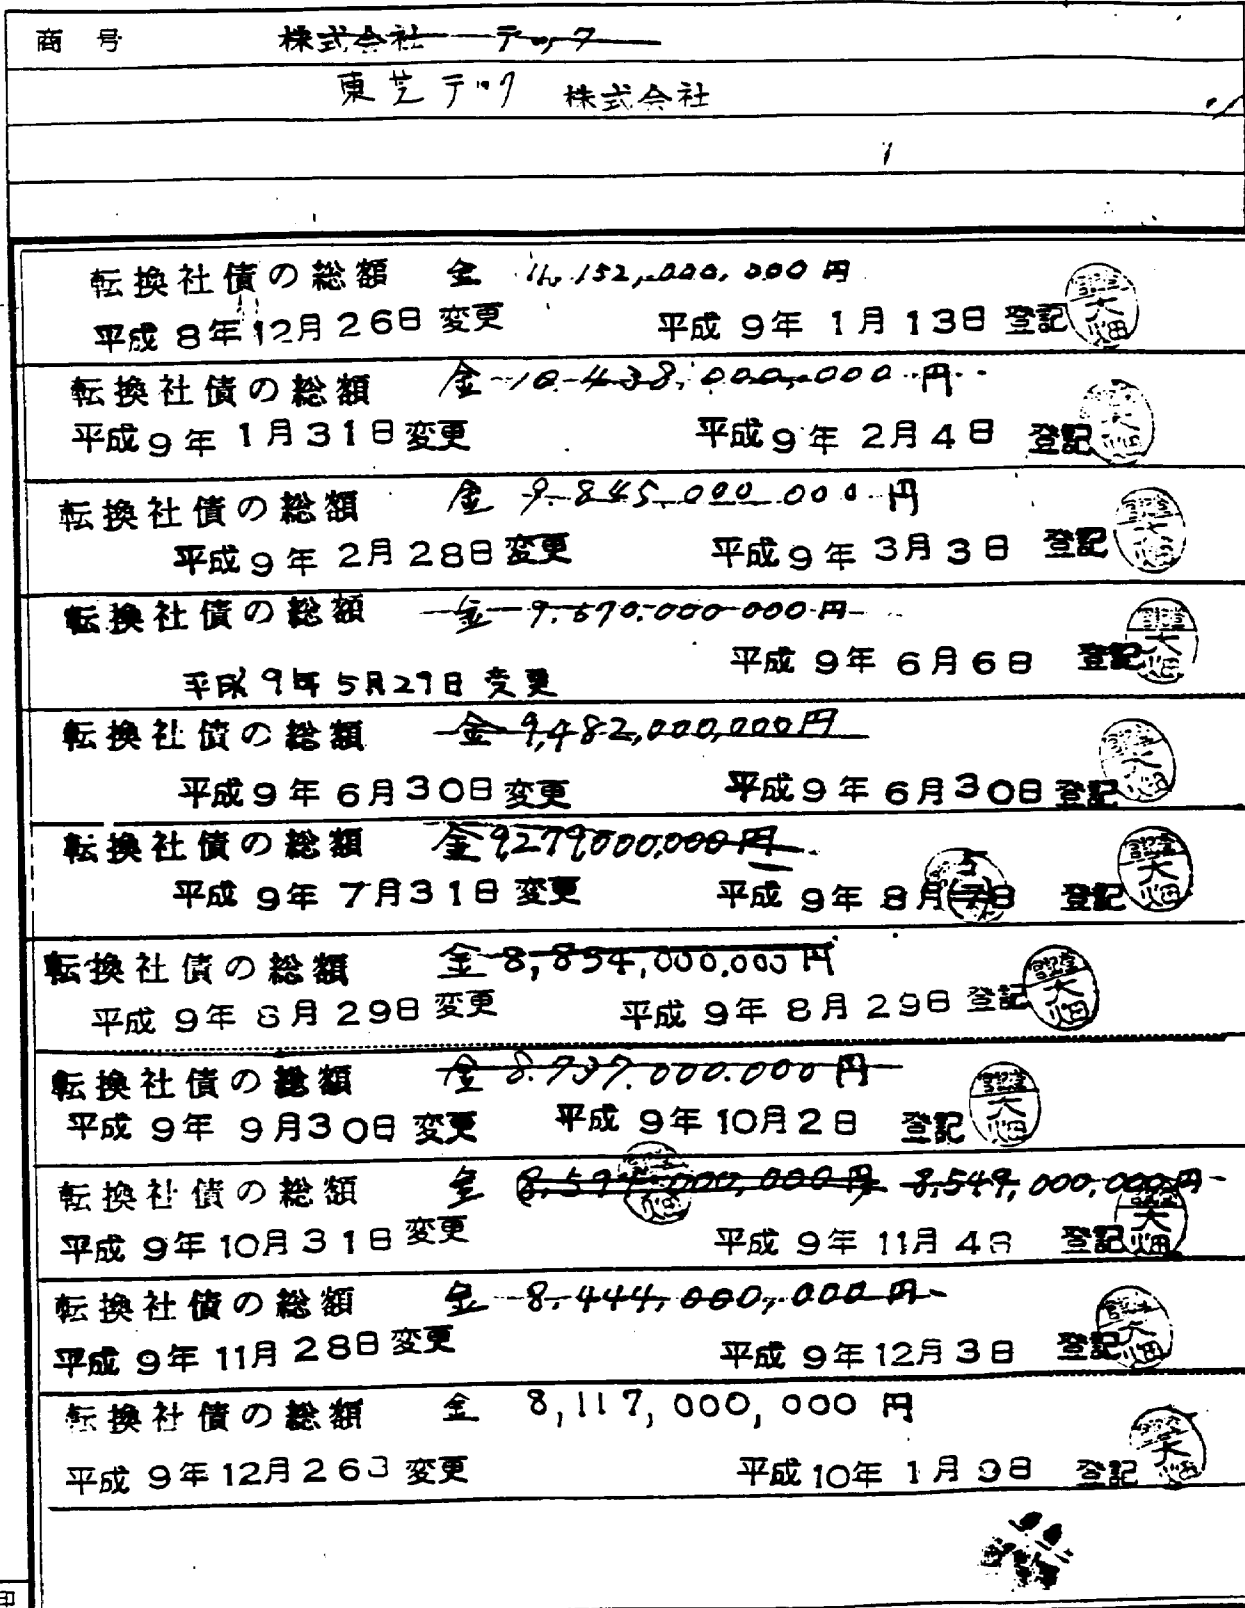 商号 株式会社 テック
東芝テック 株式会社
転換社債の総額 金 11,152,000,000円
平成8年12月26日変更 平成9年1月13日登記
転換社債の総額 金10,438,000,000円
平成9年1月31日変更 平成9年2月4日登記
転換社債の総額 金9,845,000,000円
平成9年2月28日変更 平成9年3月3日登記
転換社債の総額 金9,670,000,000円
平成9年6月6日登記
平成9年5月29日変更
転換社債の総額 金9,482,000,000円
平成9年6月30日変更 平成9年6月30日登記
転換社債の総額 金9,279,000,000円
5
平成9年7月31日変更 平成9年8月7日登記
転換社債の総額 金8,854,000,000円
平成9年8月29日変更 平成9年8月29日登記
転換社債の総額 金8.737.000.000円
平成9年9月30日変更 平成9年10月2日登記
転換社債の総額 金 8,549,000,000円
平成9年10月31日変更 平成9年11月4日登記
転換社債の総額 金8,444,000,000円
平成9年11月28日変更 平成9年12月3日登記
転換社債の総額 金 8,117,000,000円
平成9年12月26日変更 平成10年1月9日登記
印